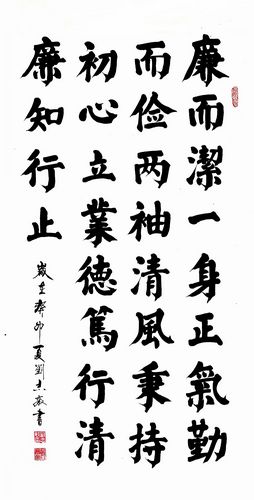 廉而潔一身正氣勤
而俭两袖清風秉持
初心立業德篤行清
廉知行止
歲在癸卯夏劉志敏書